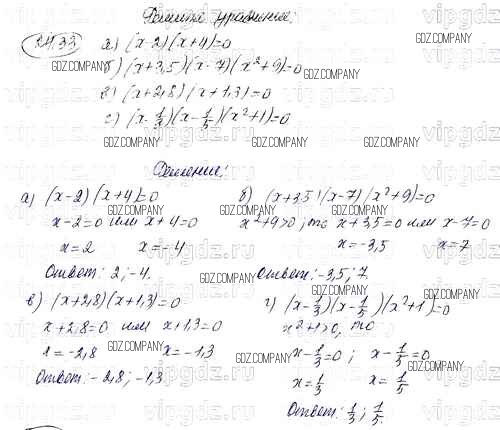 Решить уравнение:
24.33 а) (x-2)(x+4)=0
б) (x+3,5)(x-7)(x²+9)=0
в) (x+2,8)(x+1,3)=0
г) (x-1/3)(x-1/5)(x²+1)=0
Решение:
а) (x-2)(x+4)=0
x-2=0 или x+4=0
x=2 x=-4
Ответ: 2; -4.
б) (x+3,5)(x-7)(x²+9)=0
x²+9>0, то x+3,5=0 или x-7=0
x=-3,5 x=7
Ответ: -3,5; 7
в) (x+2,8)(x+1,3)=0
x+2,8=0 или x+1,3=0
x=-2,8 x=-1,3
Ответ: -2,8; -1,3
г) (x-1/3)(x-1/5)(x²+1)=0
x²+1>0, то
x-1/3=0; x-1/5=0
x=1/3 x=1/5
Ответ: 1/3; 1/5.
GDZ.COMPANY
vipgdz.ru